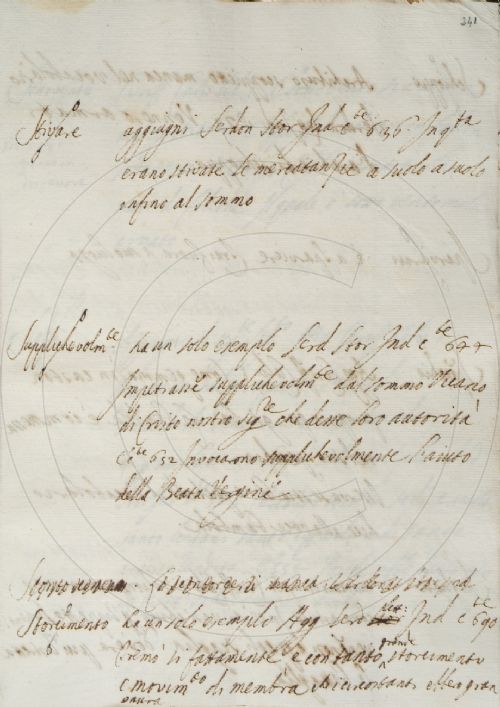 241
Stivare aggiugni Serdon Stor Ind c.te 636. In q.ta
erano stivate le mercatanzie a suolo a suolo
infino al sommo
Supplichevolm.te ha un solo esempio Serd Stor Ind c.te 647
Impetrare supplichevolm.te dal sommo Vicario
di Cristo nostro Sig.re che desse loro autorità
c.te 652 Invocarono supplichevolmente l'aiuto
della Beata Vergine
Storcimento ha un solo esempio Agg Serd Stor Ind c.te 690
Tremò sì fatamente e con tanto storcimento
e movim.to di membra che i circostanti ebber gran
paura